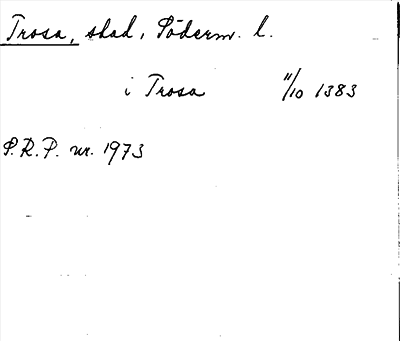 Trosa, stad, Söderm. l.
i Trosa 11/10 1383
S.R.P. nr. 1973